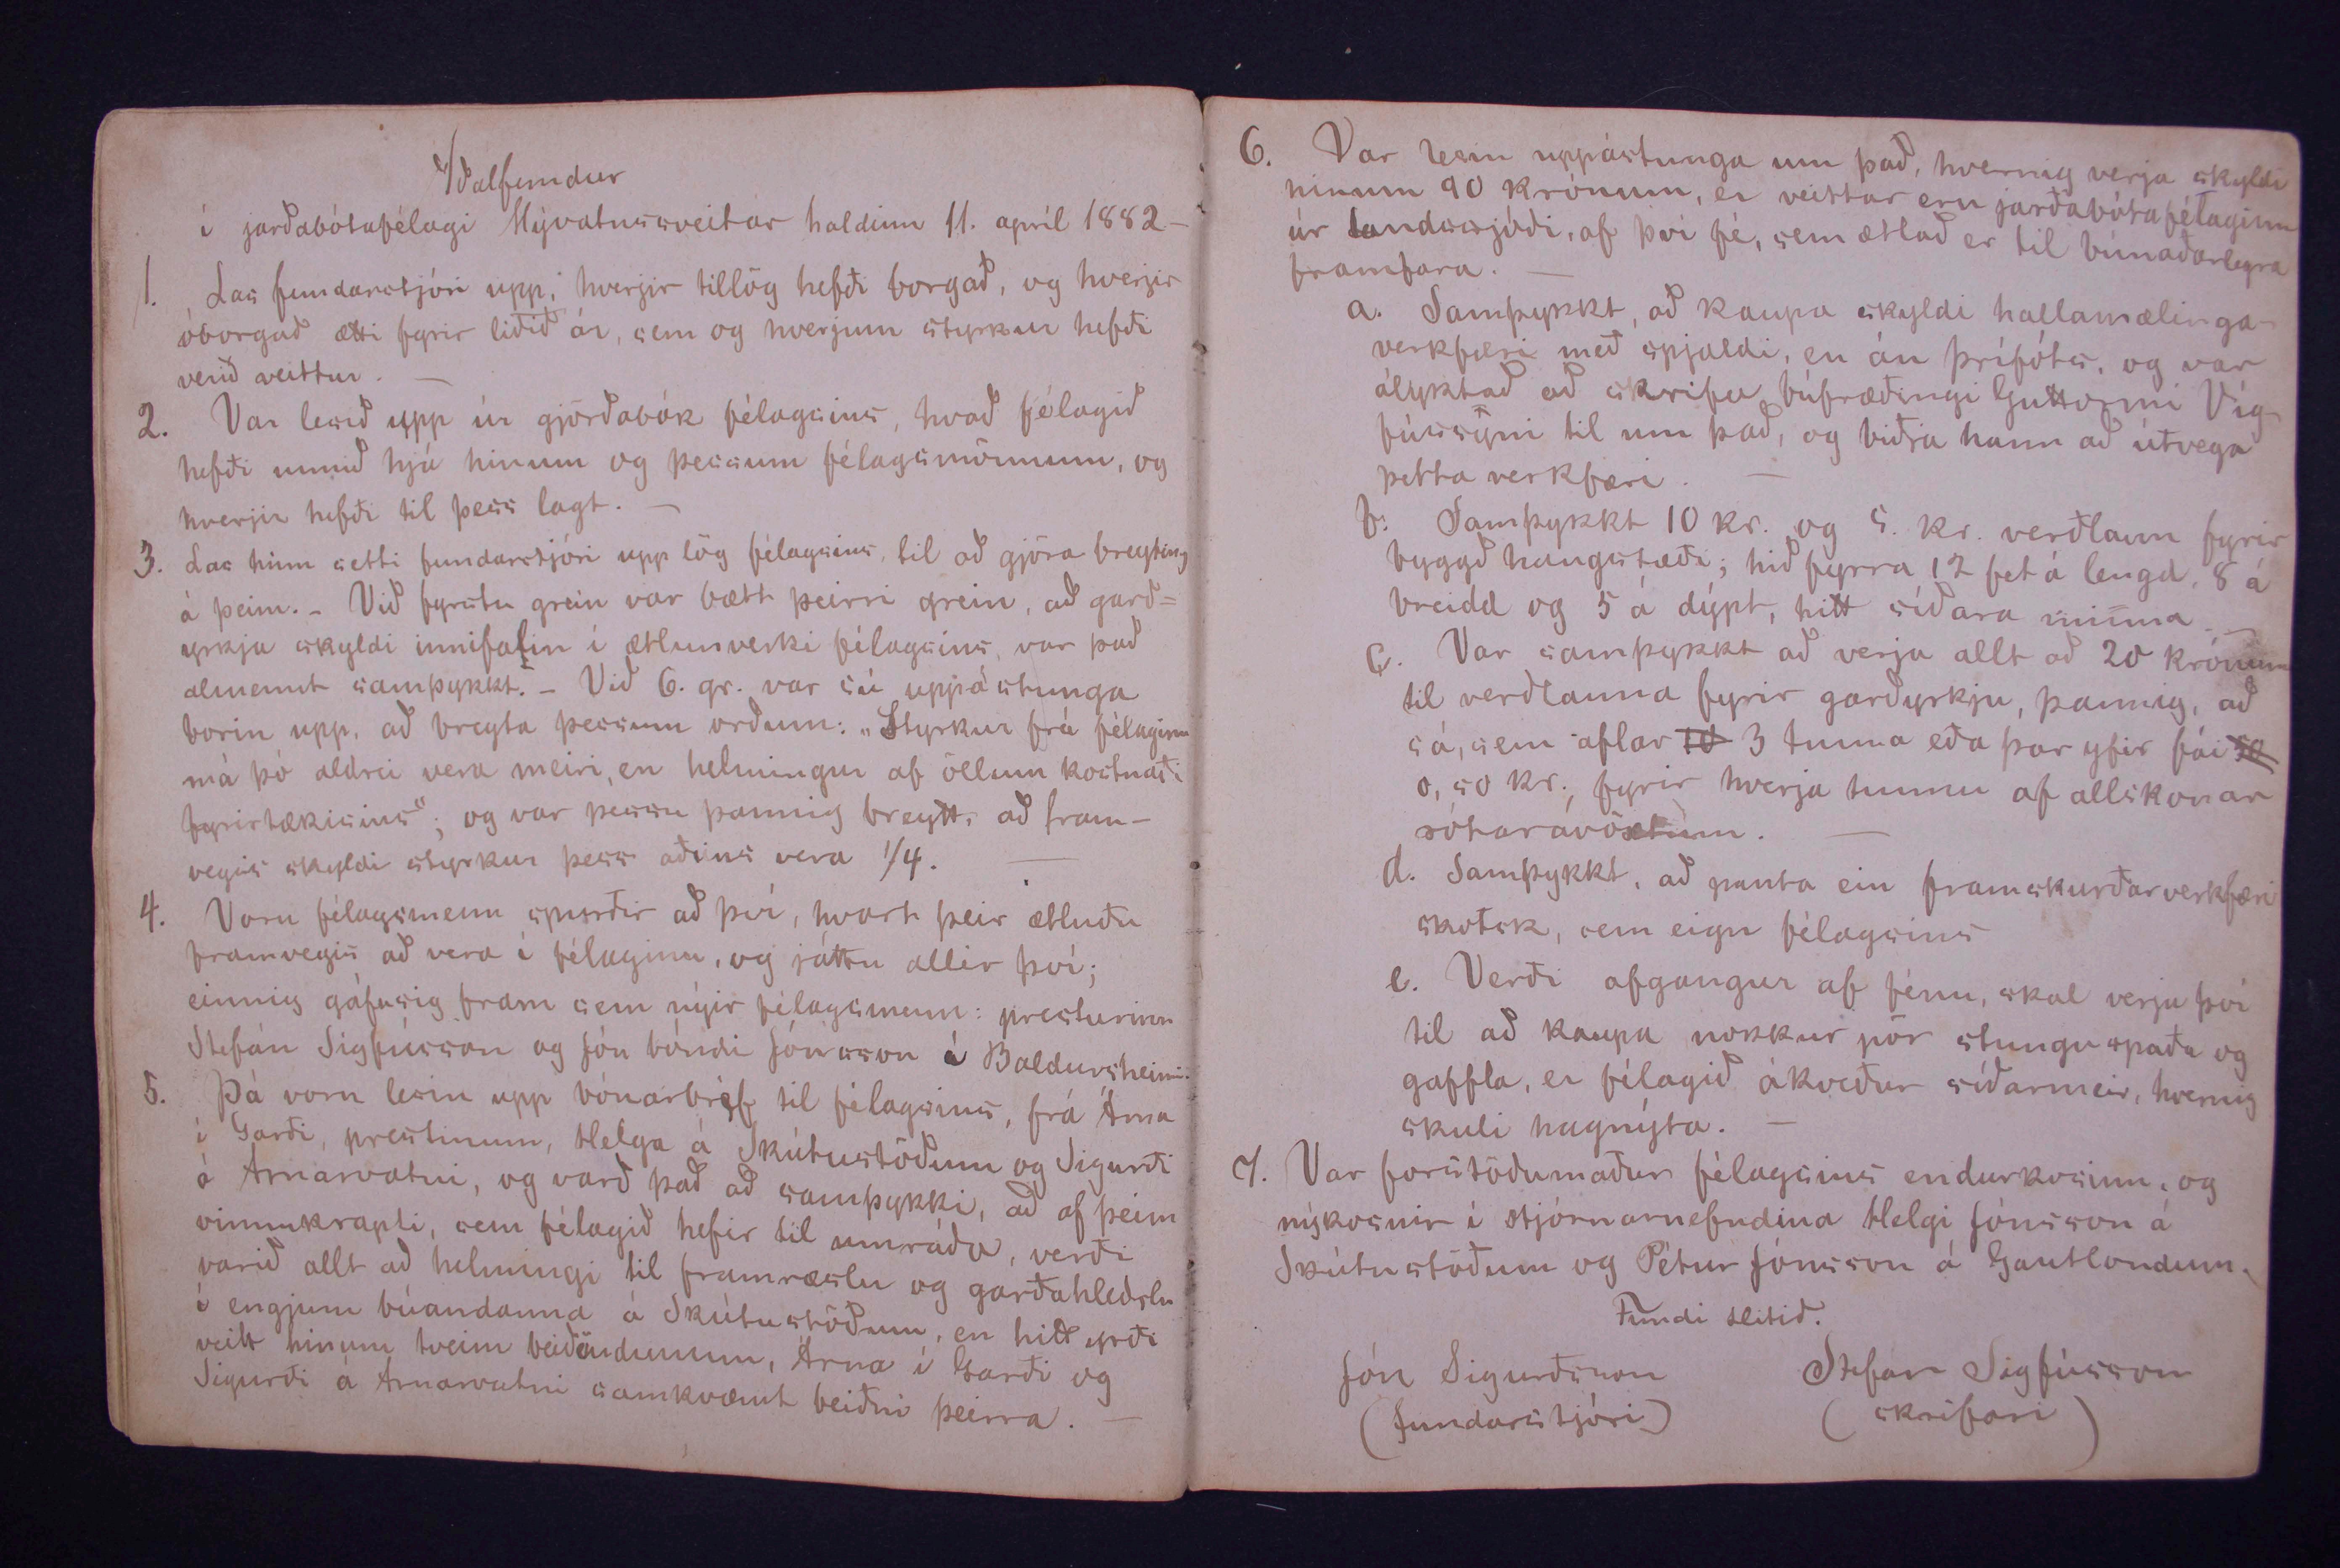 Aðalfundur
í jarðabótafélagi Mývatnssveitar haldinn 11. apríl 1882 –
1. Las fundarstjóri upp, hverjir tillög hefði borgað, og hverjir
óborgað ætti fyrir liðið ár, sem og hverjum styrkur hefði
verið veittur. –
2. Var lesið upp úr gjörðabók félagsins, hvað félagið
hefði unnið hjá hinum og þessum félagsmönnum, og
hverjir hefði til þess lagt. –
3. Las hinn setti fundarstjóri upp lög félagsins, til að gjöra breyting
á þeim. – Við fyrstu grein var bætt þeirri grein, að garð=
yrkja skyldi innifalin í ætlunverki félagsins, var það
almennt samþykkt. – Við 6. gr. var sú uppástunga
borin upp, að breyta þessum orðum: „Styrkur frá félaginu
má þó aldrei vera meiri, en helmingur af öllum kostnaði
fyrirtækisins“; og var þessu þannig breytt, að fram-
vegis skyldi styrkur þess aðeins vera 1/4. –
4. Voru félagsmenn spurðir að því, hvort þeir ætluðu
framvegis að vera í félaginu, og játtu allir því;
einnig gáfu sig fram sem nýir félagsmenn: presturinn
Stefán Sigfússon og Jón bóndi Jónsson á Baldursheimi.
5. Þá voru lesin upp bónarbréf til félagsins, frá Árna
í Garði, prestinum, Helga á Skútustöðum og Sigurði
á Arnarvatni, og varð það að samþykki, að af þeim
vinnukrapti, sem félagið hefir til umráða, verði
varið allt að helmingi til framræslu og garðahleðslu
í engjum búandanna á Skútustöðum, en hitt yrði
veitt hinum tveim beiðöndunum, Árna í Garði og
Sigurði á Arnarvatni samkvæmt beiðni þeirra. –
6. Var lesin uppástunga um það, hvernig verja skyldi
hinum 90 krónum, er veittar eru jarðabótafélaginu
úr landssjóði, af því fé, sem ætlað er til búnaðarlegra
framfara. –
a. Samþykkt, að kaupa skyldi hallamælinga-
verkfæri með spjaldi, en án þrífóts, og var
ályktað að skrifa búfræðingi Guttormi Vig-
fússyni til um það, og biðja hann að útvega
þetta verkfæri. –
b. Samþykkt 10 kr. og 5. kr. verðlaun fyrir
byggð haugstæði; hið fyrra 12 fet á lengd, 8 á
breidd og 5 á dýpt, hitt síðara minna. –
c. Var samþykkt að verja allt að 20 krónum
til verðlauna fyrir garðyrkju, þannig, að
sá, sem aflar 10 3 tunna eða þar yfir fái 50
0,50 kr., fyrir hverja tunnu af allskonar
rótarávöxtum. –
d. Samþykkt, að panta ein framskurðarverkfæri
skotsk, sem eign félagsins
e. Verði afgangur af fénu, skal verja því
til að kaupa nokkur pör stunguspaða og
gaffla, er félagið ákveður síðarmeir, hvernig
skuli hagnýta. –
7. Var forstöðumaður félagsins endurkosinn, og
nýkosnir í stjórnarnefndina Helgi Jónsson á
Skútustöðum og Pétur Jónsson á Gautlöndum.
Fundi slitið.
Jón Sigurðsson Stefán Sigfússon
(fundarstjóri) (skrifari)